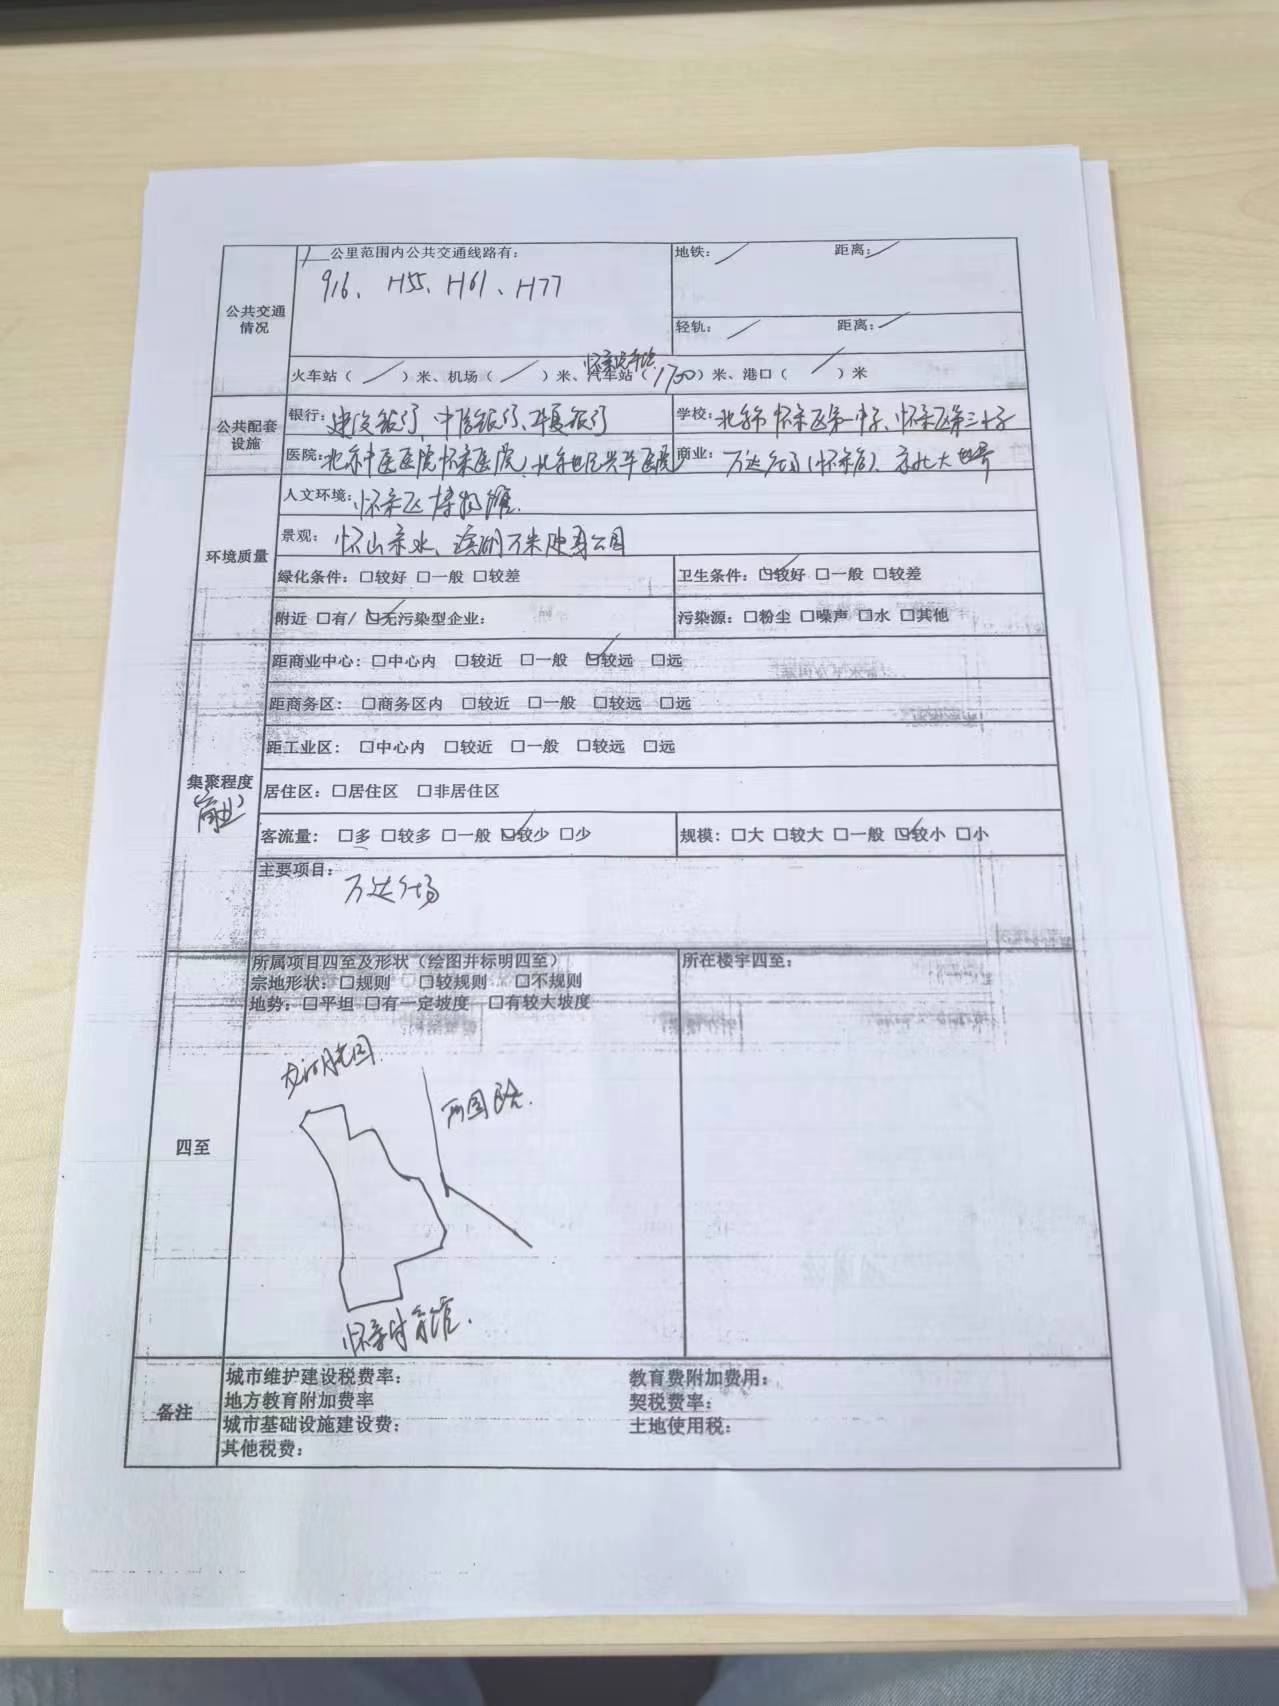 公共交通情况
1 公里范围内公共交通线路有:
916、H55、H61、H77
地铁: / 距离: /
轻轨: / 距离: /
怀柔汽车站
火车站( / )米、机场( / )米、汽车站(1700)米、港口( / )米
公共配套设施
银行: 建设银行、中信银行、华夏银行
学校: 北京市怀柔区第一中学、怀柔区第三中学
医院: 北京中医医院怀柔医院、北京
商业: 万达广场(怀柔店)、京北大世界
环境质量
人文环境: 怀柔区博物馆
景观: 怀山柔水、滨湖万米健身公园
绿化条件: □较好 □一般 □较差
卫生条件: ☑较好 □一般 □较差
附近 □有/ ☑无污染型企业:
污染源: □粉尘 □噪声 □水 □其他
集聚程度
(商业)
距商业中心: □中心内 □较近 □一般 ☑较远 □远
距商务区: □商务区内 □较近 □一般 □较远 □远
距工业区: □中心内 □较近 □一般 □较远 □远
居住区: □居住区 □非居住区
客流量: □多 □较多 □一般 ☑较少 □少
规模: □大 □较大 □一般 ☑较小 □小
主要项目:
万达广场
四至
所属项目四至及形状(绘图并标明四至)
宗地形状: □规则 □较规则 □不规则
地势: □平坦 □有一定坡度 □有较大坡度
所在楼宇四至:
路
怀柔体育馆
备注
城市维护建设税费率:
教育费附加费用:
地方教育附加费率
契税费率:
城市基础设施建设费:
土地使用税:
其他税费: